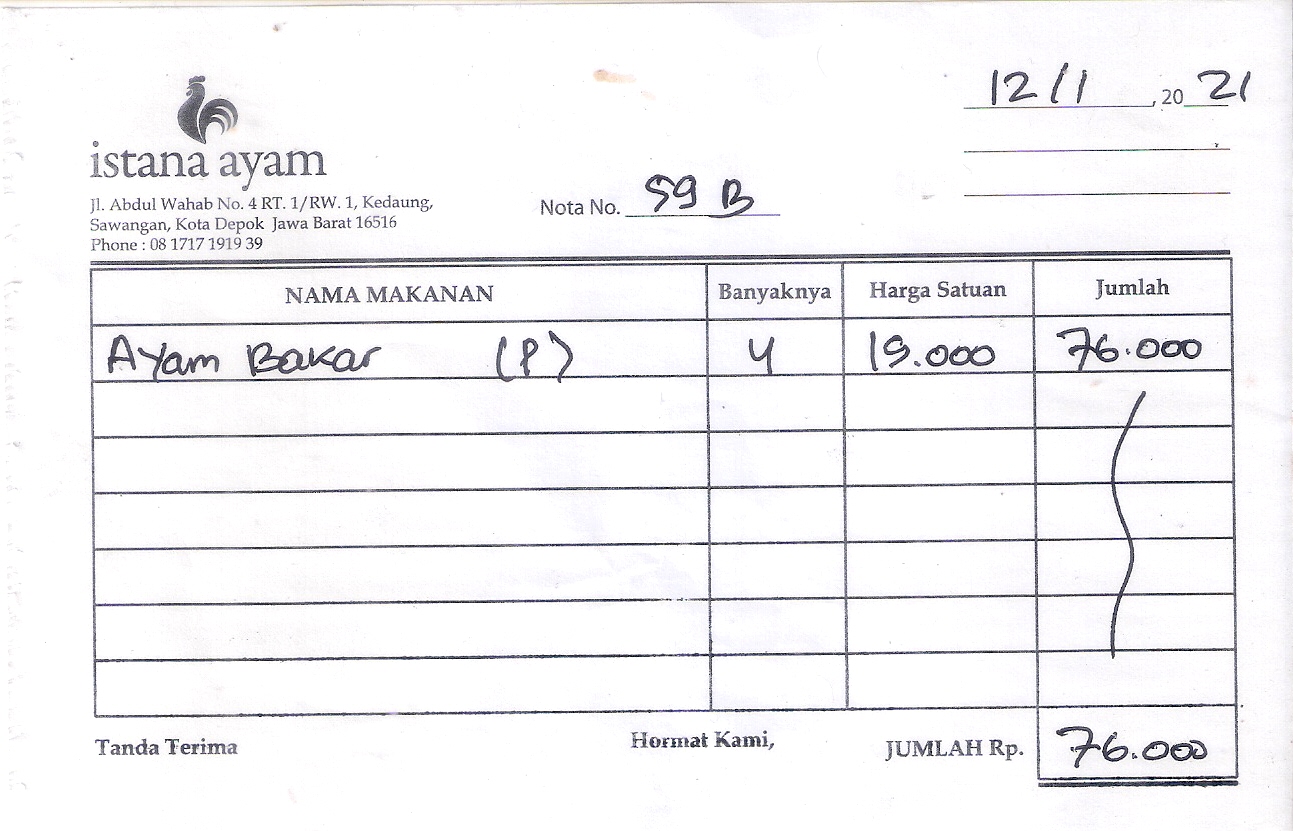 12/1, 20 21
istana ayam
Jl. Abdul Wahab No. 4 RT. 1/RW. 1, Kedaung,
Sawangan, Kota Depok Jawa Barat 16516
Phone : 08 1717 1919 39
Nota No. 59 B
NAMA MAKANAN Banyaknya Harga Satuan Jumlah
Ayam Bakar (P) 4 19.000 76.000
Tanda Terima Hormat Kami, JUMLAH Rp. 76.000